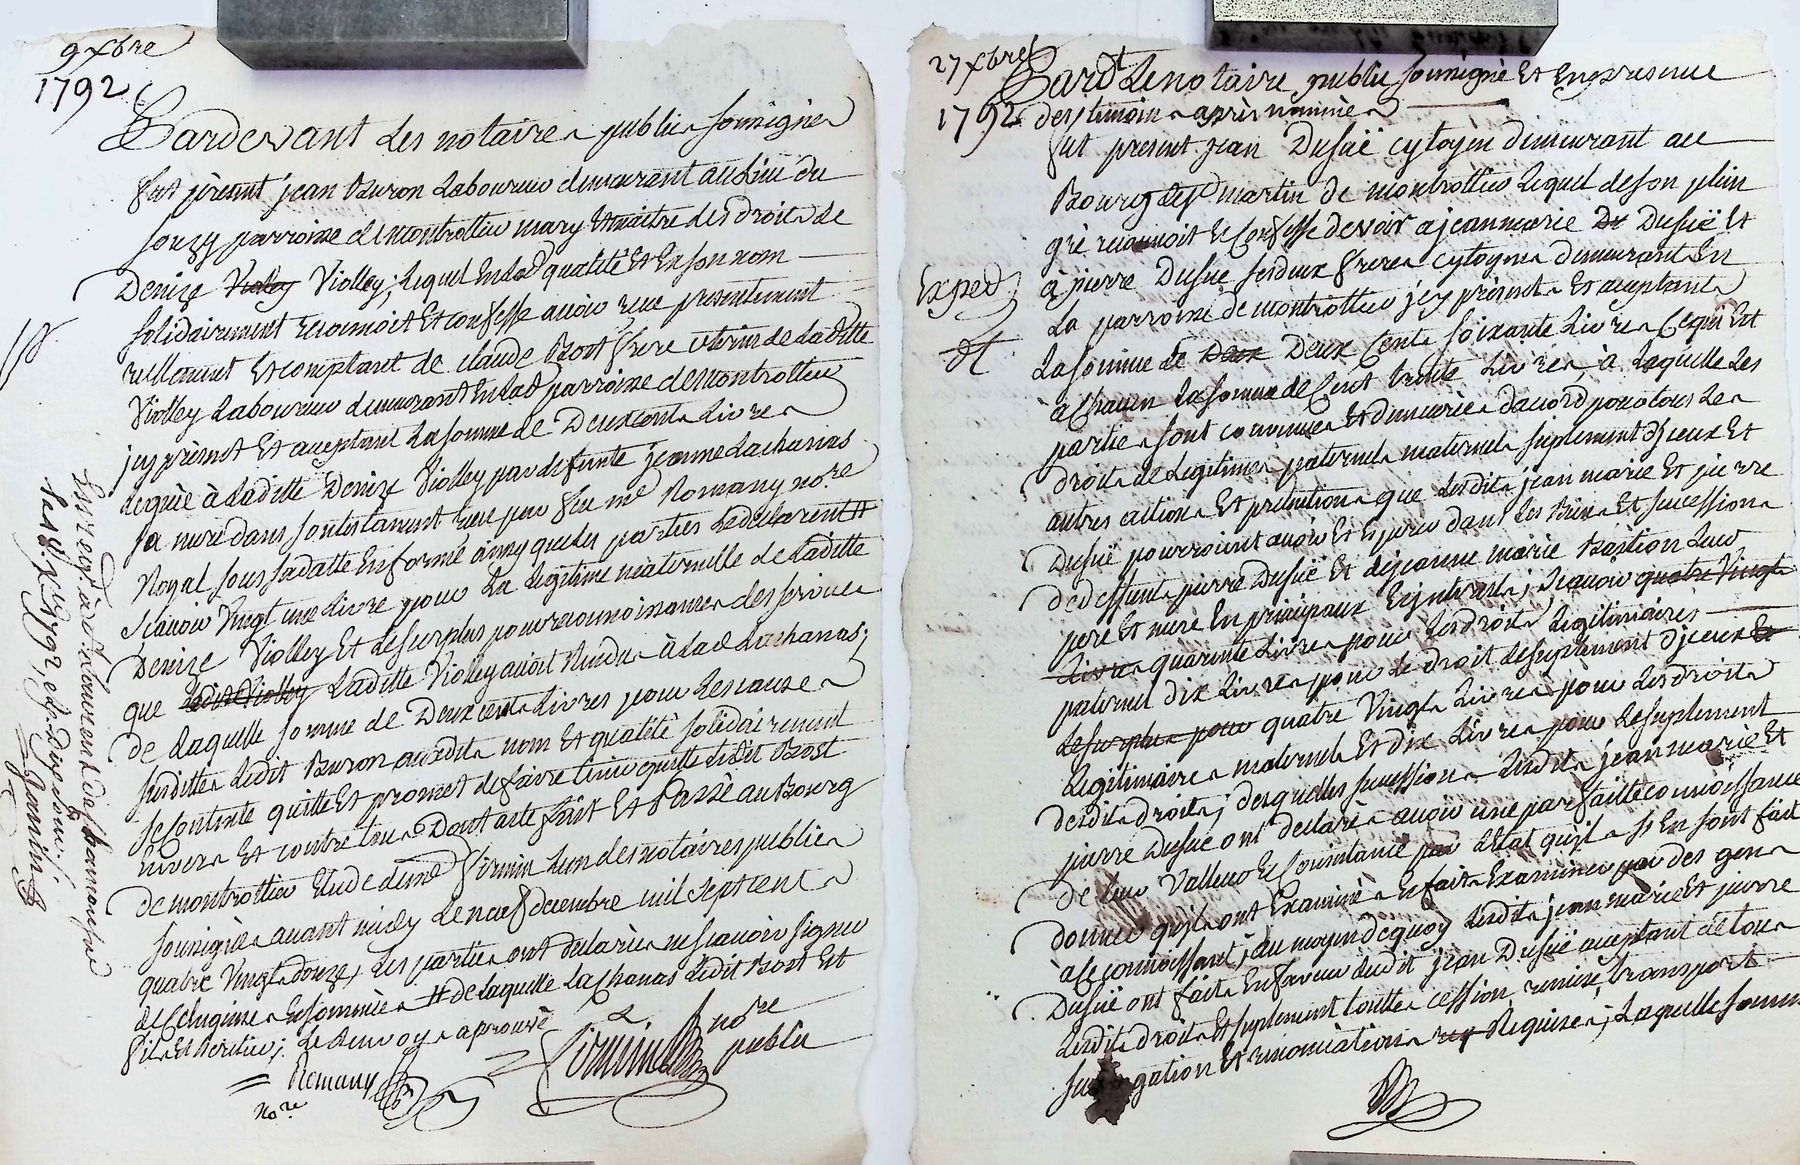 9 xbre
1792
Pardevant Les notaires publics soussignés
fut présent jean Buron Laboureur demeurant au Lieu du
Souzy parroisse de montrottier mary et maitre des droits de
Denize Violley Violley; Lequel En lad qualité Et En son nom
solidairement reconnoit Et confesse avoir reçu presentement
reellement Et comptant de claude Bost frere uterin de Laditte
Violley Laboureur demeurant En lad parroisse de montrottier
jcy présent Et acceptant La somme de Deux cents Livres
Leguée à Laditte Denize Violley par defunte jeanne Lachanas
sa mere dans son testament reçu par feu me Romany nore
Royal sous sa datte En forme ainsy que les parties Le déclarent #
Scavoir Vingt une Livre pour La Legitime maternelle de Laditte
Denize Violley Et Le surplus pour reconnoissance des services
que Laditte Violley Laditte Violley avoit Rendu à Lad Lachanas;
de Laquelle somme de Deux cents Livres pour Les causes
susdittes Ledit Buron auxdits nom Et qualité solidairement
se contente quitte Et promet de faire tenir quitte Ledit Bost
Envers Et contre tous Dont acte fait Et Passé au Bourg
de montrottier Etude de me Firmin L'un des notaires publics
soussignés avant midy Le neuf decembre mil sept cent
quatre Vingt douze, Les parties ont declaré ne scavoir signer
de ce Enquises Et sommées # de laquelle Lachanas Ledit Bost Est
fils Et heritier; Le Renvoy approuvé
Romany Firmin nore
nore public
Enreg. à St Laurent de Chamousset
Le 1792,
Jamin
27 xbre
1792
Pardt Le notaire public soussigné Et En presence
des temoins après nommés
fut present jean Dusuë cytoyen demeurant au
Bourg de st martin de montrottier Lequel de son plein
gré reconnoit Et Confesse devoir a jean marie De Dusuë Et
à pierre Dusuë ses deux freres cytoyens demeurant En
La parroisse de montrottier jcy présents Et acceptants
La somme de Deux Deux Cents soixante Livres Ce qui Est
à Chacun La somme de Cent trente Livres, à Laquelle Les
parties sont convenues Et demeurées d'acord pour tous Les
droits de Legitimes paternels maternels suplement d'jceux Et
autres actions Et prétentions que Lesdits jean marie Et pierre
Dusuë pourroient avoir Et Esperer dans Les Biens Et successions
de deffunts pierre Dusuë Et de jeanne marie Bastion Leur
pere Et mere En principaux Et jnterets; Scavoir quatre Vingt
Livres quarente Livres pour Les droits Legitimaires
paternel dix Livres pour Le droit de suplement d'jceux Et
Le surplus pour quatre Vingt Livres pour Les droits
Legitimaires maternels Et dix Livres pour Le suplement
desdits droits; desquelles successions Lesdits jean marie Et
pierre Dusuë ont declaré avoir une parfaitte connoissance
de Leur Valleur Et Consistance par L'Etat qu'ils s'En sont fait
donner qu'ils ont Examiné Et fait Examiner par des gens
à Ce connoissant; au moyen de quoy Lesdits jean marie Et pierre
Dusuë ont fait En faveur dudit jean Dusuë acceptant de tous
Lesdits droits Et suplement touttes cession remise transport
subrogation Et renonciations req Requises; Laquelle somme
Exped